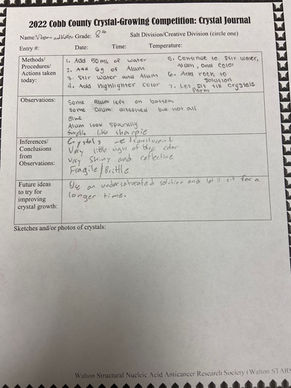 2022 Cobb County Crystal-Growing Competition: Crystal Journal
Name: Grade: 8th Salt Division/Creative Division (circle one)
Entry #: Date: Time: Temperature:
Methods/
Procedures/
Actions taken
today:
1. Add 50 mL of water
2. Add 6g of Alum
3. Stir Water and Alum
4. Add highlighter color
5. Continue to Stir water,
Alum, and color
6. Add rock to
solution
7. Let it sit crystals
form
Observations:
Some Alum left on bottom
Some Alum dissolved but not all
Alum look sparkly
like sharpie
Inferences/
Conclusions
from
Observations:
Crystals are translucent
Very little sight of the color
Very Shiny and reflective
Fragile/Brittle
Future ideas
to try for
improving
crystal growth:
Use an undersaturated solution and let it sit for a
longer time.
Sketches and/or photos of crystals:
Walton Structural Nucleic Acid Anticancer Research Society (Walton STARS